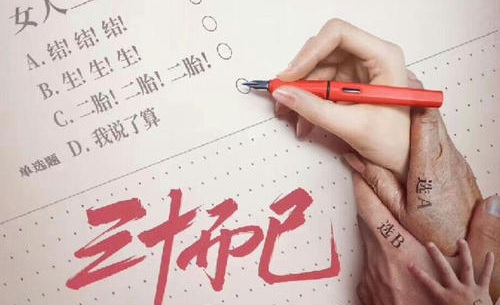 女人
A. 结! 结! 结!
B. 生! 生! 生!
C. 二胎! 二胎! 二胎!
单选题 D. 我说了算
选A
选B
三十而已